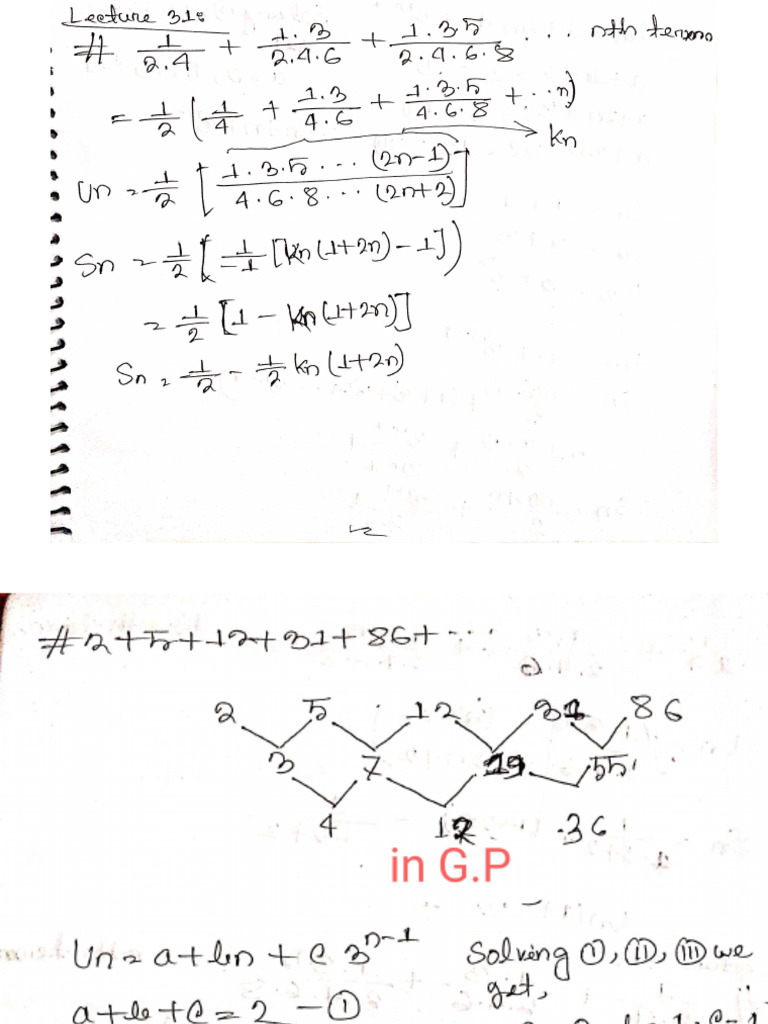 Lecture 31:
# 1/2.4 + 1.3/2.4.6 + 1.3.5/2.4.6.8 ... nth terms
= 1/2 ( 1/4 + 1.3/4.6 + 1.3.5/4.6.8 + ... n)
Kn
Un = 1/2 [ 1.3.5 ... (2n-1) / 4.6.8 ... (2n+2) ]
Sn = 1/2 ( 1/-1 [Kn(1+2n) - 1] )
= 1/2 [1 - Kn(1+2n)]
Sn = 1/2 - 1/2 Kn (1+2n)
# 2+5+12+31+86+ ...
2 5 12 31 86
3 7 19 55
4 12 36
in G.P
Un = a+bn + c 3^(n-1) Solving (i), (ii), (iii) we
get,
a+b+c = 2 - (1)